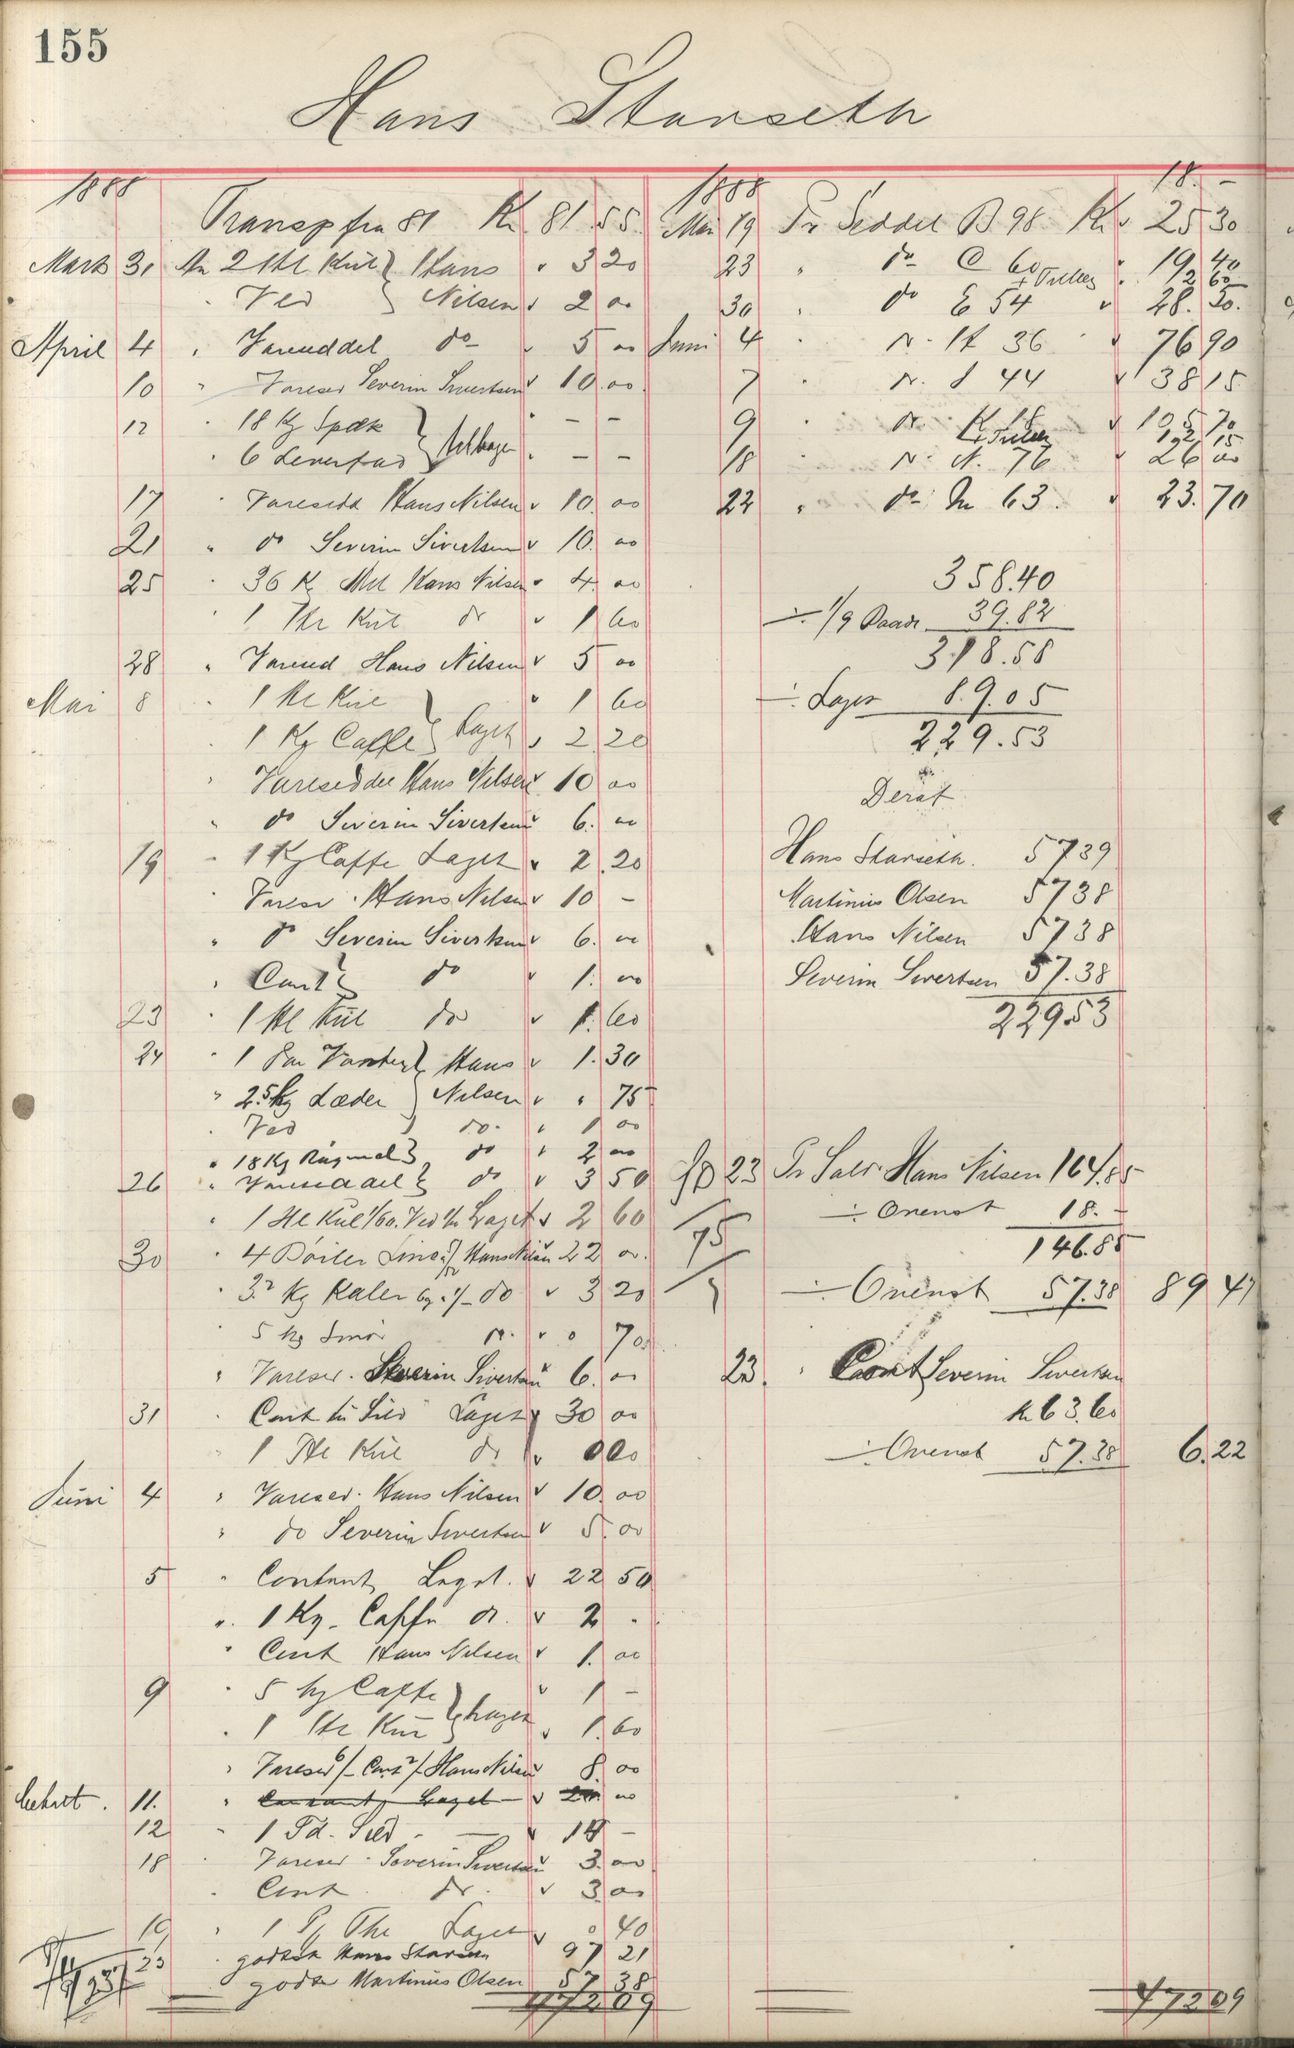 155
Hans Starseth
1888
Transp fra 81 Kr 81.55
Marts 31 An 2 Hl Kul } Hans " 3 20
" Ved } Nilsen " 2 00
April 4 " Vareseddel do " 5 00
10 " Varesed Severin Sivertsen " 10.00
12 " 18 Kg Spæk " – –
" 6 Leverfad " – –
17 " Varesedd Hans Nilsen " 10.00
21 " do Severin Sivertsen " 10.00
25 " 36 K. Mel Hans Nilsen " 4.00
" 1 Hl Kul do " 1 60
28 " Varesed Hans Nilsen " 5 00
Mai 8 " 1 Hl Kul } " 1 60
" 1 Kg Caffe } Laget " 2.20
" Vareseddel Hans Nilsen " 10 00
" do Severin Sivertsen " 6.00
19 " 1 Kg Caffe Laget " 2.20
" Varesed Hans Nilsen " 10 –
" do Severin Sivertsen " 6.00
" Cont } do " 1.00
23 " 1 Hl Kul do " 1.60
24 " 1 Par Vanter } Hans " 1.30
" 2.5 Kg Læder } Nilsen " " 75
" Ved do " 1 00
" 18 Kg Rugmel } do " 2 00
26 " Vareseddel } do " 3 50
" 1 Hl Kul 1/60. Ved 1/- Laget " 2 60
30 " 4 Bøiler Line Hans Nilsen 22 00
" 32 Kg Kaler do " 3 20
" 5 kg Smør do " 0 70
" Varesed. Severin Sivertsen " 6.00
31 " Cont til Sild Laget " 30 00
" 1 Hl Kul do "
Juni 4 " Varesed. Hans Nilsen " 10.00
" do Severin Sivertsen " 5.00
5 " Contant Laget. " 22 50
" 1 Kg. Caffe do. " 2 "
" Cont Hans Nilsen " 1.00
9 " 5 hg Caffe } " 1 –
" 1 Hl Kul } Laget " 1.60
" Varesed 6/- Cont 2/- Hans Nilsen 8.00
11. " Contant Laget – " 20 00
12 " 1 Td. Sild – " 14 –
18 " Varesed. Severin Sivertsen 3.00
" Cont do. " 3.00
19 " 1 Thé Laget " 0 40
23 " godskr Hans Starseth 97 21
" godskr Martinus Olsen 57 38
47209
1888
18.–
Mai 19 Pr Seddel B 98 Kr " 25 30
23 " do C 60 " 19 40
2 60
30 " do E 54 " 28.50.
Juni 4 " do. H 36 " 76 90
7 " do. J 44 " 38 15
9 " do. K 18 " 105 70
12 15
18 " do. N. 76 " 26 00
22 " do M 63. " 23.70
358.40
÷ 1/9 39.82
318.58
÷ Laget 89.05
229.53
Deraf
Hans Starseth. 57 39
Martinius Olsen 57 38
Hans Nilsen 57 38
Severin Sivertsen 57.38
229.53
23 Pr Saldo Hans Nilsen 164.85
÷ Ovenst 18.–
146.85
÷ Ovenst 57.38 89 47
23. " Cont Severin Sivertsen
Kr 63.60
÷ Ovenst 57.38 6.22
47209